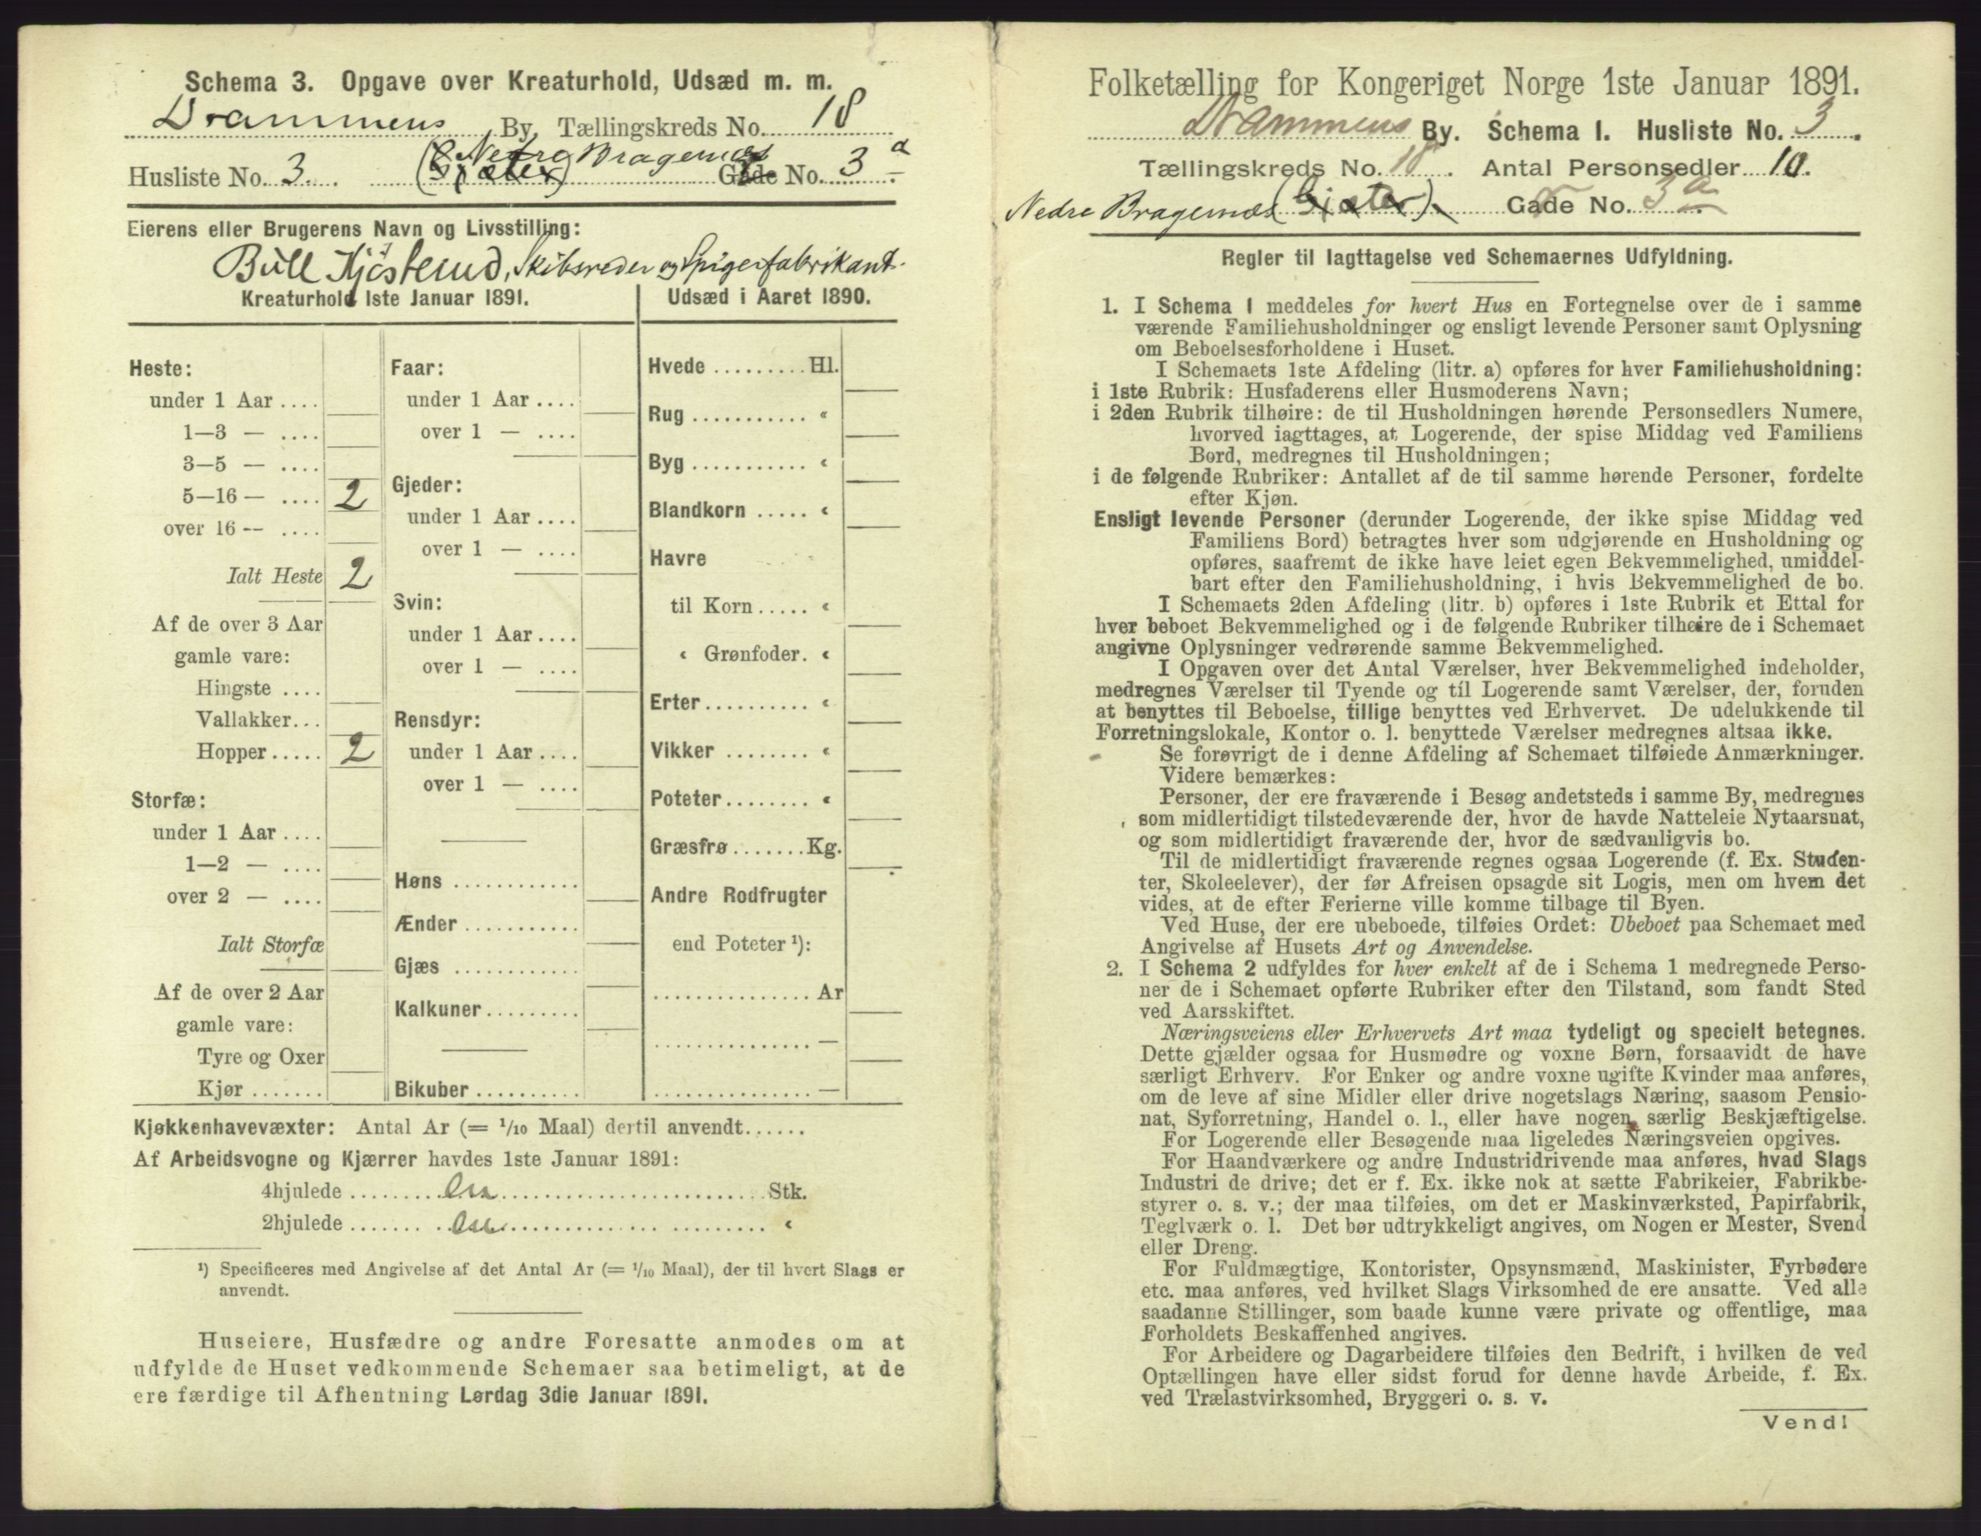 Schema 3. Opgave over Kreaturhold, Udsæd m. m.
Drammens By. Tællingskreds No. 18
Husliste No. 3. (Gjæter) Nedre Bragernæs Gade No. 3 a
Eierens eller Brugerens Navn og Livsstilling:
Bull Kjøsterud, Skibsreder og Spigerfabrikant.
Kreaturhold 1ste Januar 1891.
Heste:
under 1 Aar....
1—3 — ....
3—5 — ....
5—16 — .... 2
over 16 — ....
Ialt Heste 2
Af de over 3 Aar
gamle vare:
Hingste ....
Vallakker...
Hopper..... 2
Storfæ:
under 1 Aar....
1—2 — ....
over 2 — ....
Ialt Storfæ
Af de over 2 Aar
gamle vare:
Tyre og Oxer
Kjør.......
Faar:
under 1 Aar....
over 1 — ....
Gjeder:
under 1 Aar....
over 1 — ....
Svin:
under 1 Aar....
over 1 — ....
Rensdyr:
under 1 Aar....
over 1 — ....
Høns ...........
Ænder ..........
Gjæs ...........
Kalkuner.........
Bikuber..........
Udsæd i Aaret 1890.
Hvede.........Hl.
Rug........... «
Byg........... «
Blandkorn ..... «
Havre
til Korn..... «
« Grønfoder. «
Erter.......... «
Vikker ........ «
Poteter........ «
Græsfrø.......Kg.
Andre Rodfrugter
end Poteter ¹):
...............Ar
............... —
............... —
Kjøkkenhavevæxter: Antal Ar (= 1/10 Maal) dertil anvendt......
Af Arbeidsvogne og Kjærrer havdes 1ste Januar 1891:
4hjulede .......................... Stk.
2hjulede .......................... «
¹) Specificeres med Angivelse af det Antal Ar (= 1/10 Maal), der til hvert Slags er
anvendt.
Huseiere, Husfædre og andre Foresatte anmodes om at
udfylde de Huset vedkommende Schemaer saa betimeligt, at de
ere færdige til Afhentning Lørdag 3die Januar 1891.
Folketælling for Kongeriget Norge 1ste Januar 1891.
Drammens By. Schema 1. Husliste No. 3.
Tællingskreds No. 18. Antal Personsedler 10.
Nedre Bragernæs (Gjæter). Gade No. 3 a
Regler til Iagttagelse ved Schemaernes Udfyldning.
1. I Schema 1 meddeles for hvert Hus en Fortegnelse over de i samme
værende Familiehusholdninger og ensligt levende Personer samt Oplysning
om Beboelsesforholdene i Huset.
I Schemaets 1ste Afdeling (litr. a) opføres for hver Familiehusholdning:
i 1ste Rubrik: Husfaderens eller Husmoderens Navn;
i 2den Rubrik tilhøire: de til Husholdningen hørende Personsedlers Numere,
hvorved iagttages, at Logerende, der spise Middag ved Familiens
Bord, medregnes til Husholdningen;
i de følgende Rubriker: Antallet af de til samme hørende Personer, fordelte
efter Kjøn.
Ensligt levende Personer (derunder Logerende, der ikke spise Middag ved
Familiens Bord) betragtes hver som udgjørende en Husholdning og
opføres, saafremt de ikke have leiet egen Bekvemmelighed, umiddel-
bart efter den Familiehusholdning, i hvis Bekvemmelighed de bo.
I Schemaets 2den Afdeling (litr. b) opføres i 1ste Rubrik et Ettal for
hver beboet Bekvemmelighed og i de følgende Rubriker tilhøire de i Schemaet
angivne Oplysninger vedrørende samme Bekvemmelighed.
I Opgaven over det Antal Værelser, hver Bekvemmelighed indeholder,
medregnes Værelser til Tyende og til Logerende samt Værelser, der, foruden
at benyttes til Beboelse, tillige benyttes ved Erhvervet. De udelukkende til
Forretningslokale, Kontor o. l. benyttede Værelser medregnes altsaa ikke.
Se forøvrigt de i denne Afdeling af Schemaet tilføiede Anmærkninger.
Videre bemærkes:
Personer, der ere fraværende i Besøg andetsteds i samme By, medregnes
som midlertidigt tilstedeværende der, hvor de havde Natteleie Nytaarsnat,
og som midlertidigt fraværende der, hvor de sædvanligvis bo.
Til de midlertidigt fraværende regnes ogsaa Logerende (f. Ex. Studen-
ter, Skoleelever), der før Afreisen opsagde sit Logis, men om hvem det
vides, at de efter Ferierne ville komme tilbage til Byen.
Ved Huse, der ere ubeboede, tilføies Ordet: Ubeboet paa Schemaet med
Angivelse af Husets Art og Anvendelse.
2. I Schema 2 udfyldes for hver enkelt af de i Schema 1 medregnede Perso-
ner de i Schemaet opførte Rubriker efter den Tilstand, som fandt Sted
ved Aarsskiftet.
Næringsveiens eller Erhvervets Art maa tydeligt og specielt betegnes.
Dette gjælder ogsaa for Husmødre og voxne Børn, forsaavidt de have
særligt Erhverv. For Enker og andre voxne ugifte Kvinder maa anføres,
om de leve af sine Midler eller drive nogetslags Næring, saasom Pensio-
nat, Syforretning, Handel o. l., eller have nogen særlig Beskjæftigelse.
For Logerende eller Besøgende maa ligeledes Næringsveien opgives.
For Haandværkere og andre Industridrivende maa anføres, hvad Slags
Industri de drive; det er f. Ex. ikke nok at sætte Fabrikeier, Fabrikbe-
styrer o. s. v.; der maa tilføies, om det er Maskinværksted, Papirfabrik,
Teglværk o. l. Det bør udtrykkeligt angives, om Nogen er Mester, Svend
eller Dreng.
For Fuldmægtige, Kontorister, Opsynsmænd, Maskinister, Fyrbødere
etc. maa anføres, ved hvilket Slags Virksomhed de ere ansatte. Ved alle
saadanne Stillinger, som baade kunne være private og offentlige, maa
Forholdets Beskaffenhed angives.
For Arbeidere og Dagarbeidere tilføies den Bedrift, i hvilken de ved
Optællingen have eller sidst forud for denne havde Arbeide, f. Ex.
ved Trælastvirksomhed, Bryggeri o. s. v.
Vend!